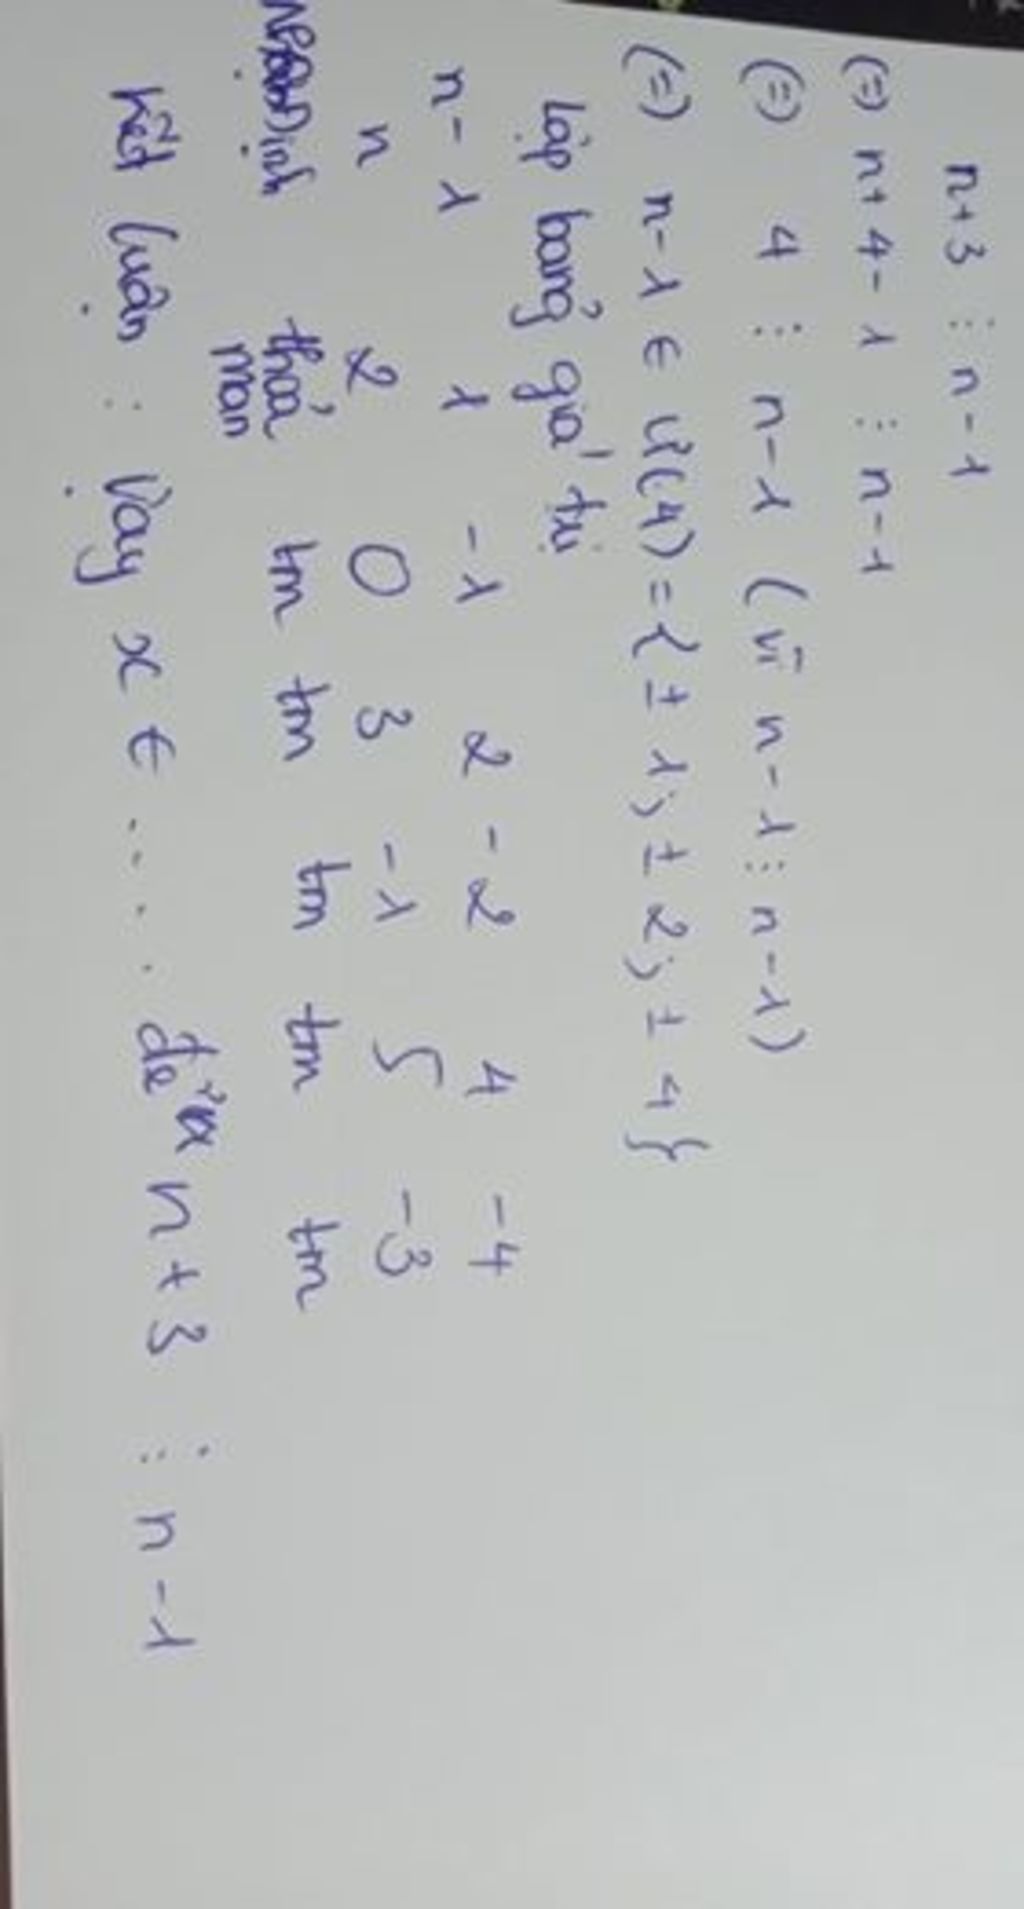 n+3 ⋮ n-1
(=) n+4-1 ⋮ n-1
(=) 4 ⋮ n-1 (vì n-1 ⋮ n-1)
(=) n-1 ∈ Ư(4) = {±1; ±2; ±4}
Lập bảng giá trị
n-1 1 -1 2 -2 4 -4
n 2 0 3 -1 5 -3
định thoả mãn tm tm tm tm tm
Kết luận : Vậy x ∈ .... để n+3 ⋮ n-1